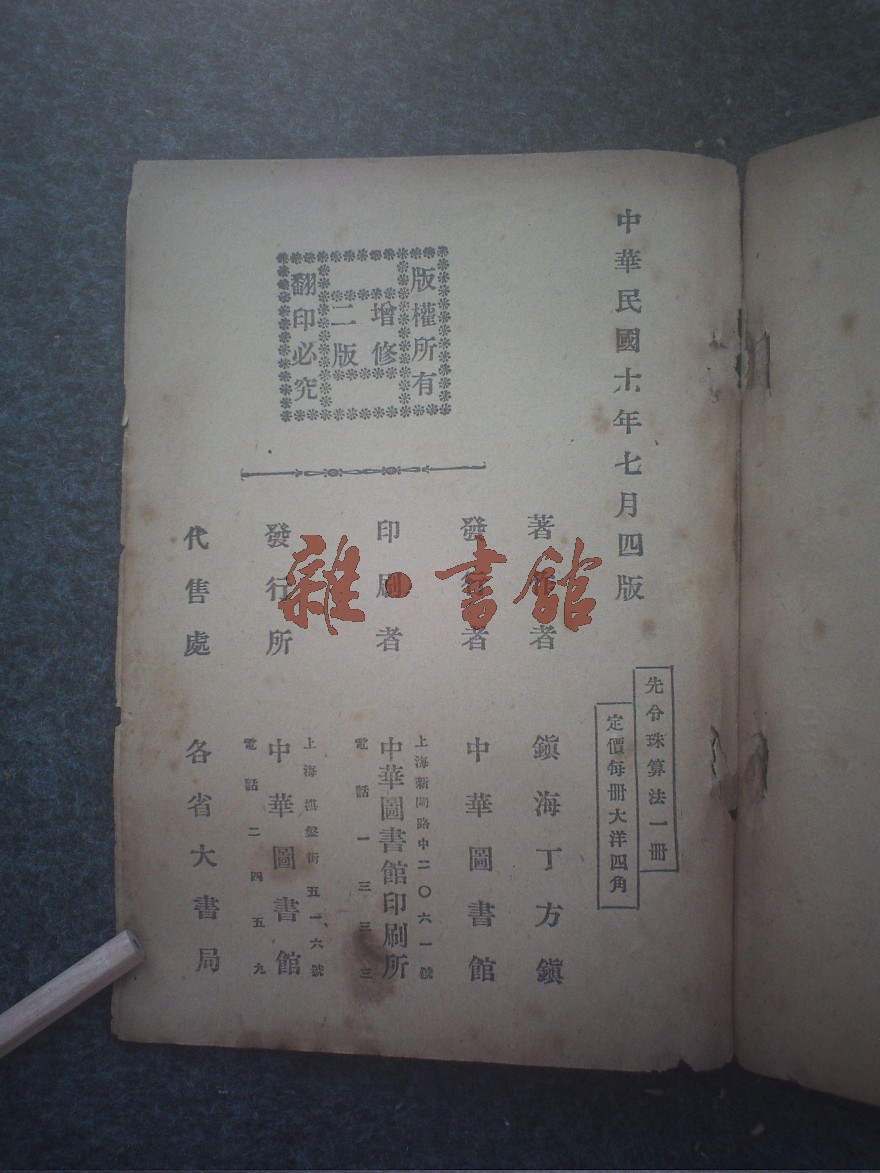 中華民國十年七月四版
先令珠算法一冊
定價每冊大洋四角
版權所有
增修
二版
翻印必究
著作者
鎮海丁方鎮
發行者
中華圖書館
印刷者
上海新閘路中二〇六一號
中華圖書館印刷所
電話一三三三
發行所
上海棋盤街五一六號
中華圖書館
電話二四五九
代售處
各省大書局
雜·書館